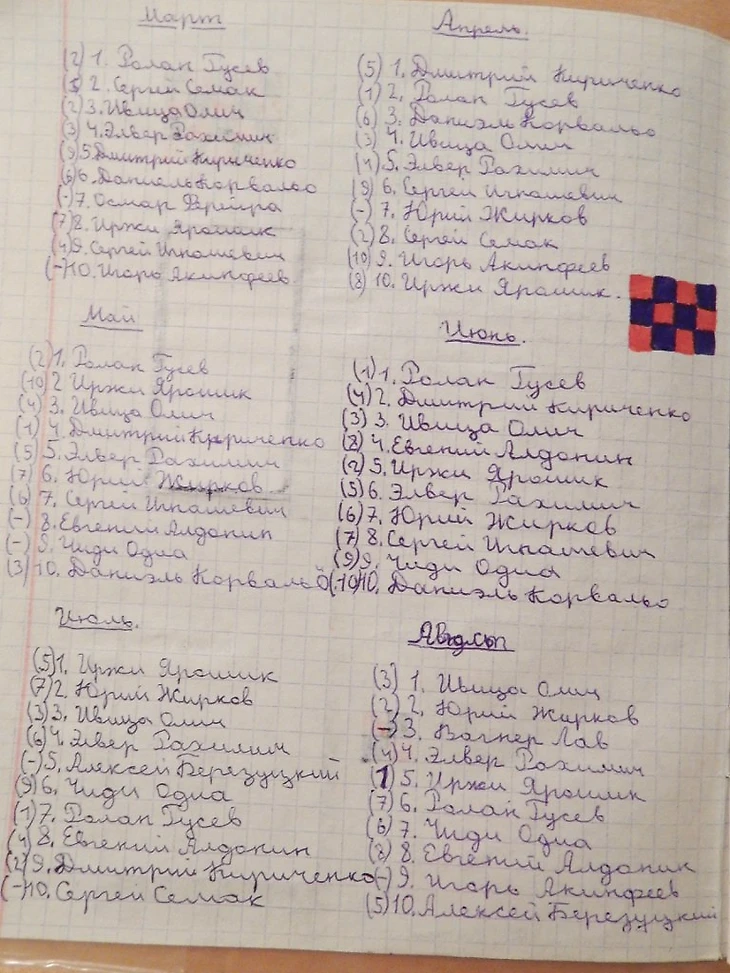 Март
(2) 1. Ролан Гусев
(5) 2. Сергей Семак
(2) 3. Ивица Олич
(3) 4. Элвер Рахимич
(9) 5. Дмитрий Кириченко
(6) 6. Даниель Корвальо
(-) 7. Осмар Ферейра
(7) 8. Иржи Ярошик
(4) 9. Сергей Игнашевич
(-) 10. Игорь Акинфеев
Апрель.
(5) 1. Дмитрий Кириченко
(1) 2. Ролан Гусев
(6) 3. Даниэль Корвальо
(3) 4. Ивица Олич
(4) 5. Элвер Рахимич
(9) 6. Сергей Игнашевич
(-) 7. Юрий Жирков
(2) 8. Сергей Семак
(10) 9. Игорь Акинфеев
(8) 10. Иржи Ярошик.
Май
(2) 1. Ролан Гусев
(10) 2 Иржи Ярошик
(4) 3. Ивица Олич
(1) 4. Дмитрий Кириченко
(5) 5. Элвер Рахимич
(7) 6. Юрий Жирков
(6) 7. Сергей Игнашевич
(-) 8. Евгений Алдонин
(-) 9. Чиди Одиа
(3) 10. Даниэль Корвальо
Июнь.
(1) 1. Ролан Гусев
(4) 2. Дмитрий Кириченко
(3) 3. Ивица Олич
(8) 4. Евгений Алдонин
(2) 5. Иржи Ярошик
(5) 6. Элвер Рахимич
(6) 7. Юрий Жирков
(7) 8. Сергей Игнашевич
(9) 9. Чиди Одиа
(10) 10. Даниэль Корвальо
Июль.
(5) 1. Иржи Ярошик
(7) 2. Юрий Жирков
(3) 3. Ивица Олич
(6) 4. Элвер Рахимич
(-) 5. Алексей Березуцкий
(9) 6. Чиди Одиа
(1) 7. Ролан Гусев
(4) 8. Евгений Алдонин
(2) 9. Дмитрий Кириченко
(-) 10. Сергей Семак
Август
(3) 1. Ивица Олич
(2) 2. Юрий Жирков
(-) 3. Вагнер Лав
(4) 4. Элвер Рахимич
(1) 5. Иржи Ярошик
(7) 6. Ролан Гусев
(6) 7. Чиди Одиа
(8) 8. Евгений Алдонин
(-) 9. Игорь Акинфеев
(5) 10. Алексей Березуцкий